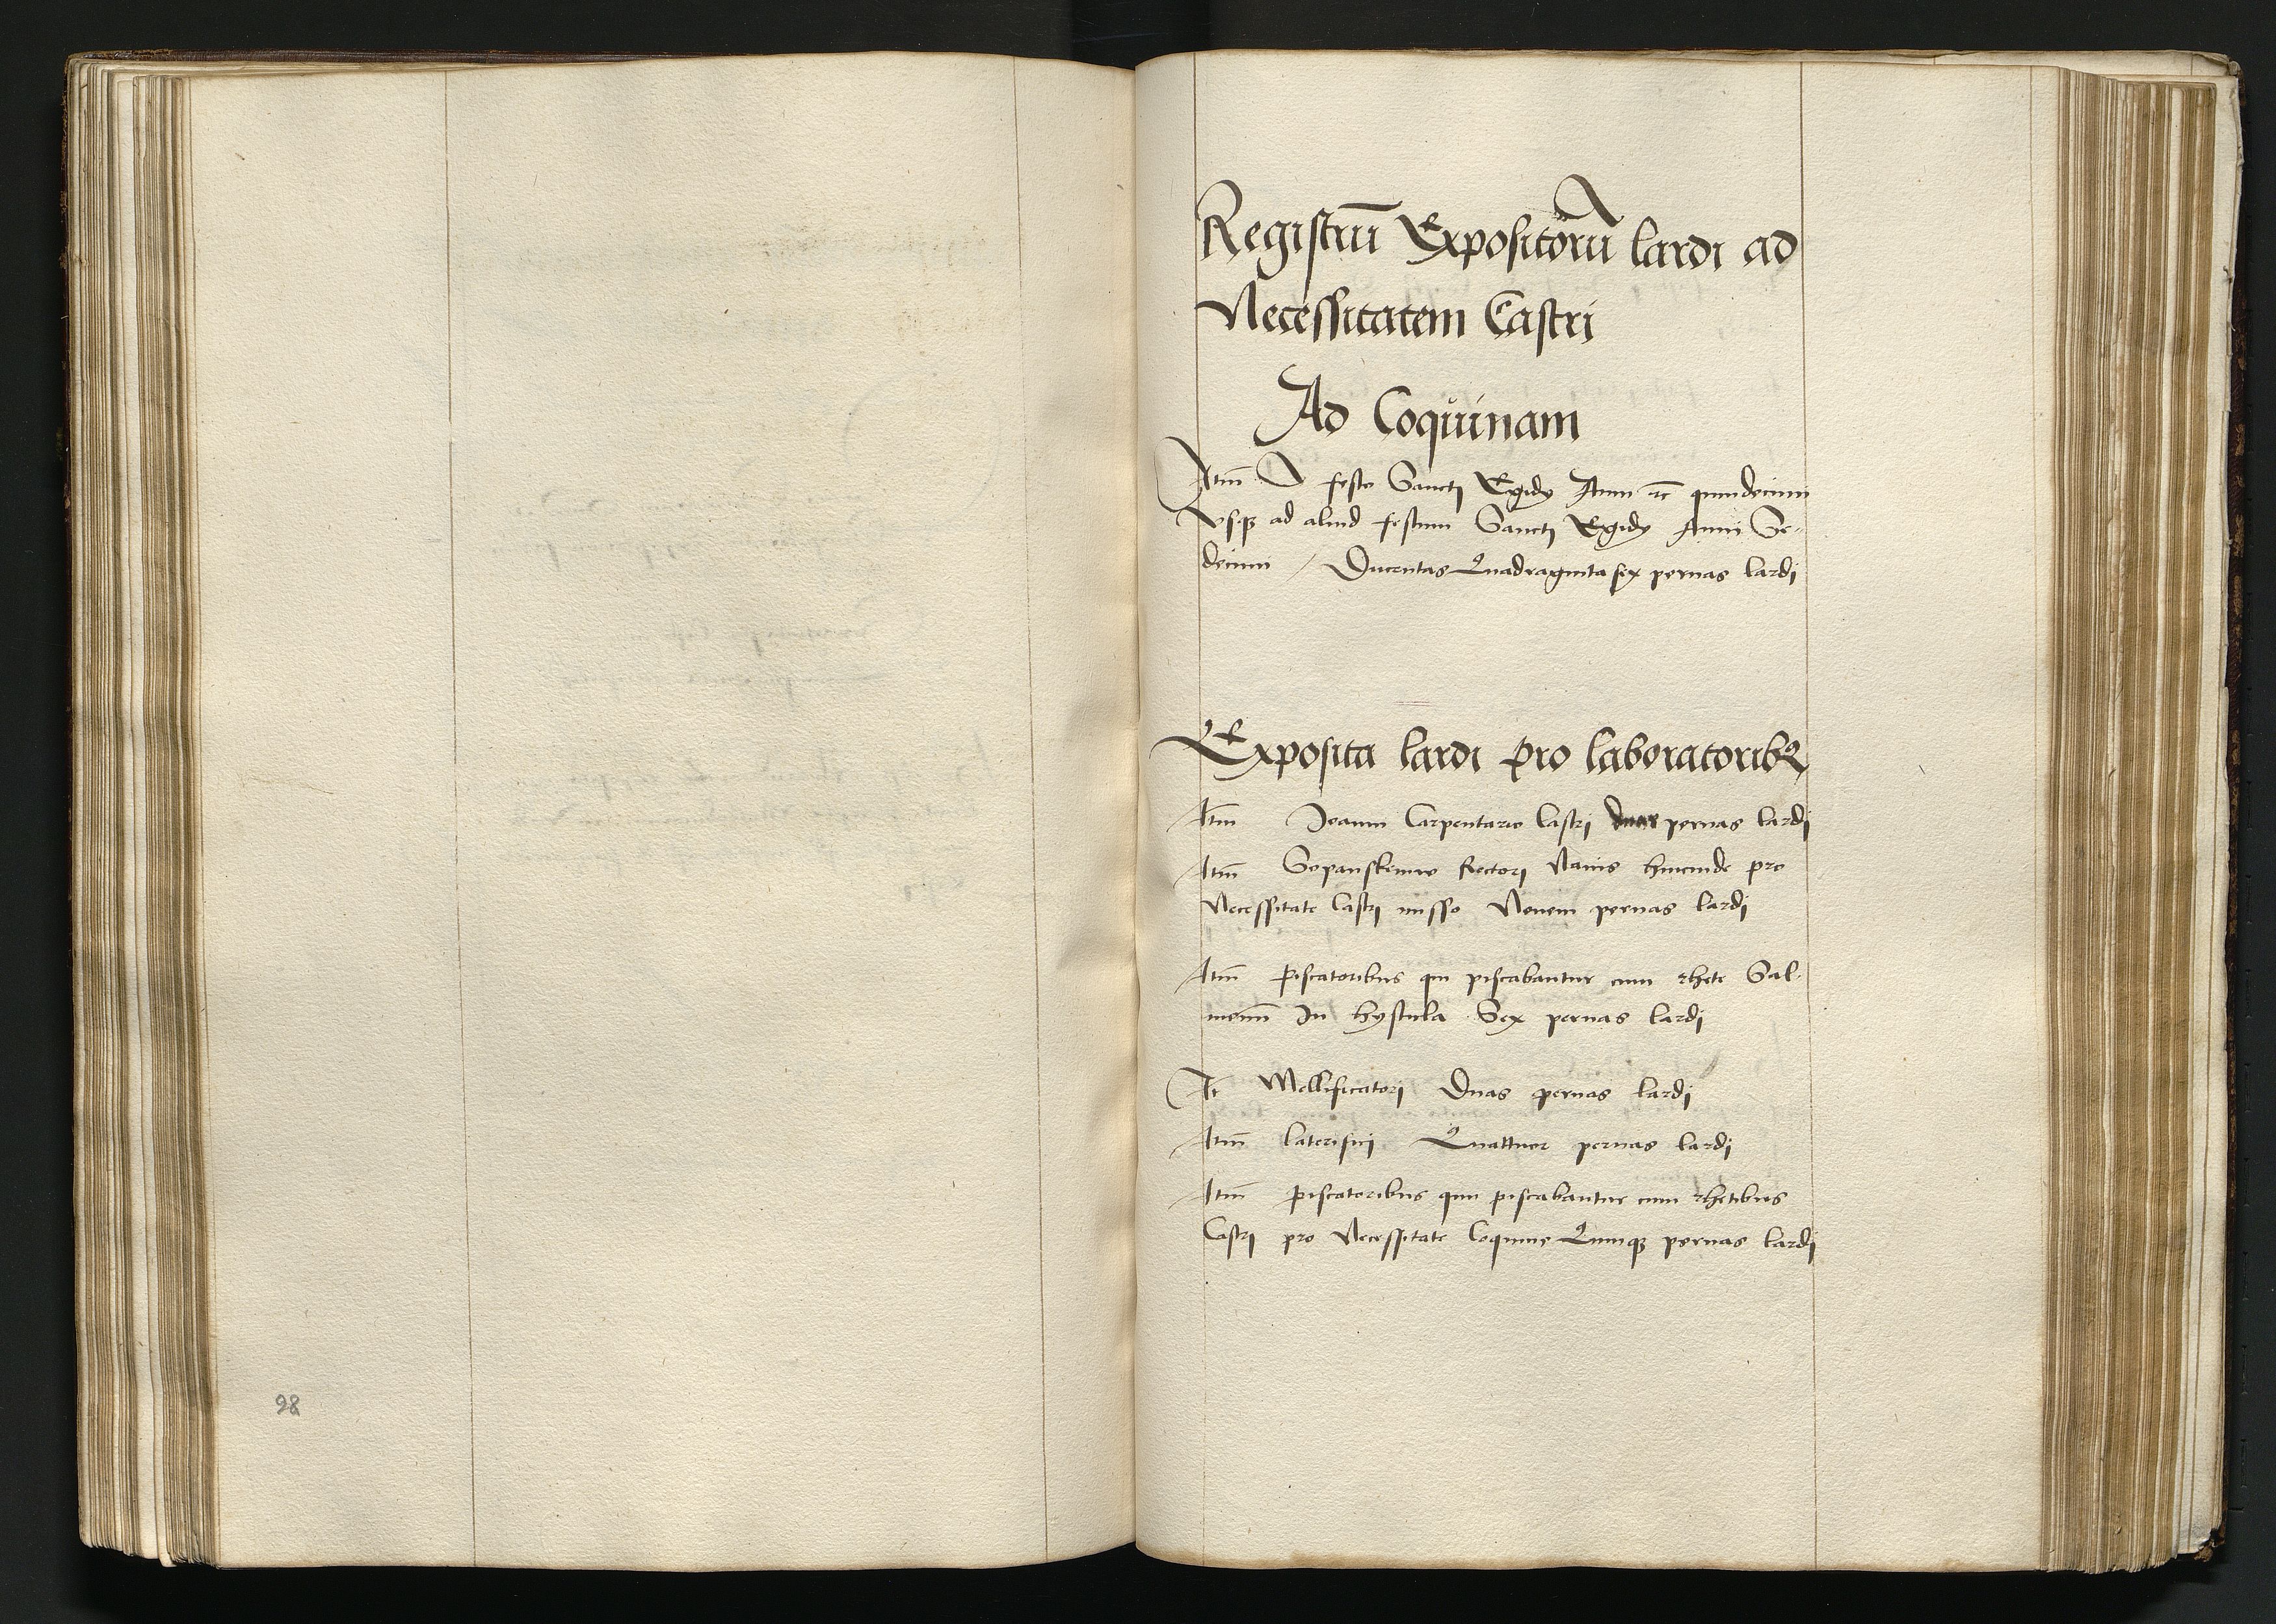 Registrū Expositorū lardi ad
Necessitatem Castri
Ad Coquinam
Itm̄ A festo Sancti Egidy Anni rc̄ quindecimi
vsqꝫ ad aliud festum Sancti Egidy Anni Se-
decimi / Ducentas Quadraginta sex pernas lardi
Exposita lardi pro laboratoribꝰ
Itm̄ Joanni Carpentario Castri duas pernas lardi
Itm̄ Rectori Nauis hincinde pro
Necessitate Castri misso Novem pernas lardi
Itm̄ piscatoribus qui piscabantur cum rhete Sal-
monū In hystula Sex pernas lardi
It Mellificatori Duas pernas lardi
Itm̄ laterifici Quattuor pernas lardi
Itm̄ piscatoribus quu piscabantur cum rhetibus
Castri pro Necessitate Coquine Quinqꝫ pernas lardi
98